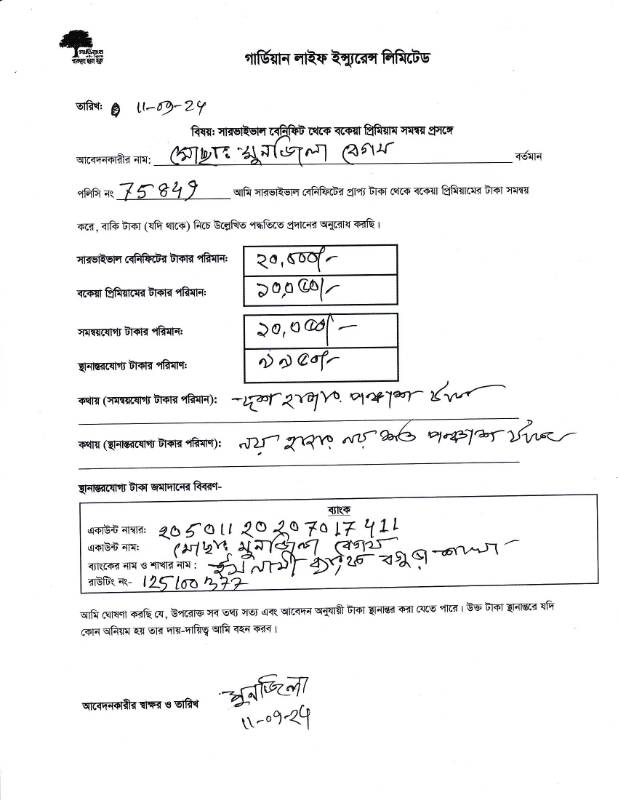 গার্ডিয়ান
গার্ডিয়ান লাইফ ইন্স্যুরেন্স লিমিটেড
তারিখঃ 11-09-24
বিষয়: সারভাইভাল বেনিফিট থেকে বকেয়া প্রিমিয়াম সমন্বয় প্রসঙ্গে
আবেদনকারীর নাম: মোছাঃ মুনজিলা বেগম বর্তমান
পলিসি নং 75849 আমি সারভাইভাল বেনিফিটের প্রাপ্য টাকা থেকে বকেয়া প্রিমিয়ামের টাকা সমন্বয়
করে, বাকি টাকা (যদি থাকে) নিচে উল্লেখিত পদ্ধতিতে প্রদানের অনুরোধ করছি।
সারভাইভাল বেনিফিটের টাকার পরিমান: ২০,০০০/-
বকেয়া প্রিমিয়ামের টাকার পরিমান: ১০,০৫০/-
সমন্বয়যোগ্য টাকার পরিমান: ১০,০৫০/-
স্থানান্তরযোগ্য টাকার পরিমাণ: ৯৯৫০/-
কথায় (সমন্বয়যোগ্য টাকার পরিমান): দশ হাজার পঞ্চাশ টাকা
কথায় (স্থানান্তরযোগ্য টাকার পরিমাণ): নয় হাজার নয় শত পঞ্চাশ টাকা
স্থানান্তরযোগ্য টাকা জমাদানের বিবরণ-
ব্যাংক
একাউন্ট নাম্বার: 20501120207017411
একাউন্ট নাম: মোছাঃ মুনজিলা বেগম
ব্যাংকের নাম ও শাখার নাম: ইসলামী ব্যাংক বগুড়া শাখা
রাউটিং নং- 125100377
আমি ঘোষণা করছি যে, উপরোক্ত সব তথ্য সত্য এবং আবেদন অনুযায়ী টাকা স্থানান্তর করা যেতে পারে। উক্ত টাকা স্থানান্তরে যদি
কোন অনিয়ম হয় তার দায়-দায়িত্ব আমি বহন করব।
মুনজিলা
আবেদনকারীর স্বাক্ষর ও তারিখ
11-09-24